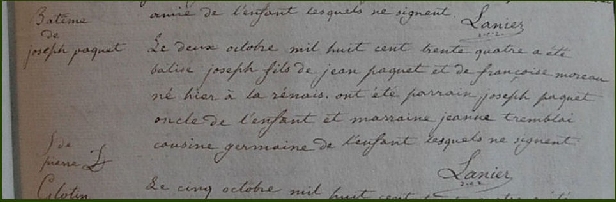 amie de l'enfant lesquels ne signent
Lanier
Batême
de
joseph paquet
Le deux octobre mil huit cent trente quatre a été
batisé joseph fils de jean paquet et de françoise moreau
né hier à la rénais. ont été parrain joseph paquet
oncle de l'enfant et marraine jeanne tremblai
cousine germaine de l'enfant lesquels ne signent.
Lanier
de
pierre
Glotin
Le cinq octobre mil huit cent